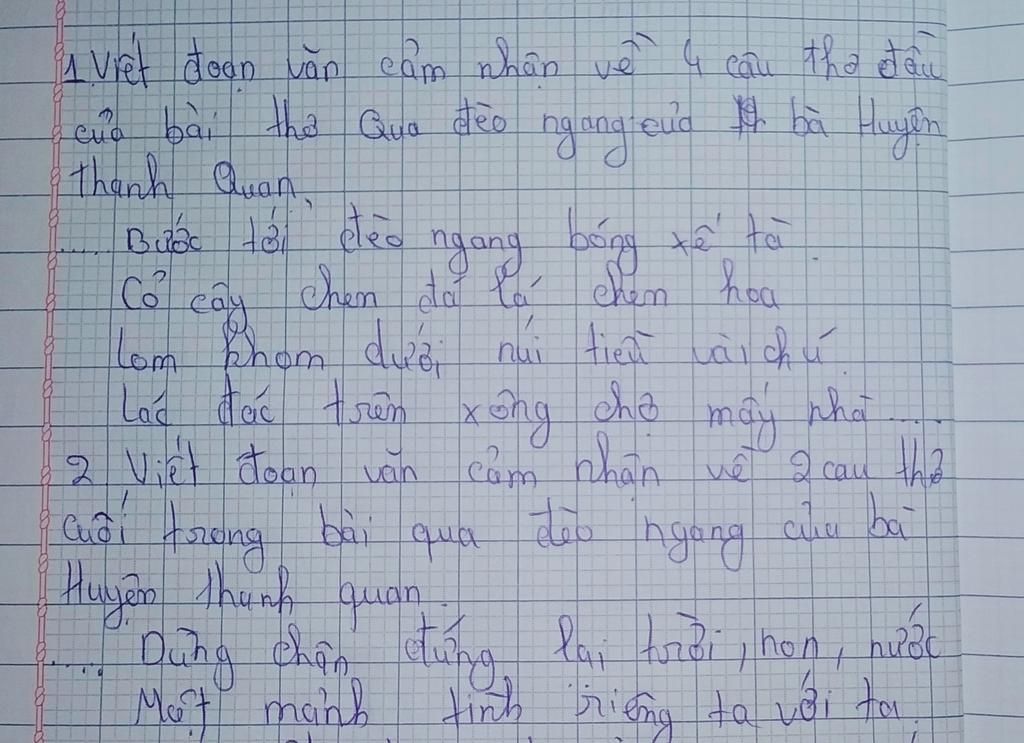 1. Viết đoạn văn cảm nhận về 4 câu thơ đầu
của bài thơ Qua đèo ngang của bà Huyện
thanh Quan.
.... Bước tới đèo ngang bóng xế tà
Cỏ cây chen đá lá chen hoa
lom khom dưới núi tiều vài chú.
Lác đác trên xông chợ mấy nhà ....
2 Viết đoạn văn cảm nhận về 2 cau thơ
cuối trong bài qua đèo ngang của bà
Huyện thanh quan.
.... Dừng chân đứng lại trời, non, nước
Một mảnh tình riêng ta với ta.